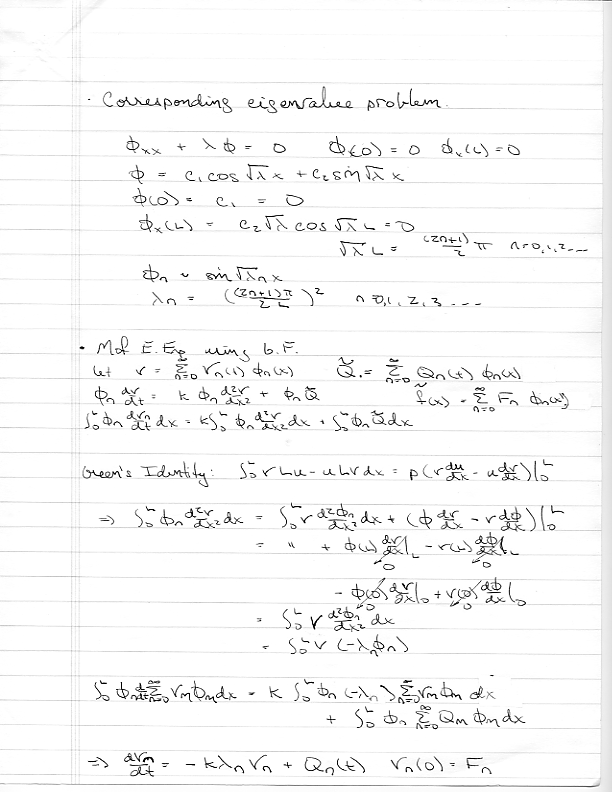 · Corresponding eigenvalue problem.
ϕxx + λϕ = 0 ϕ(0) = 0 ϕx(L) = 0
ϕ = c₁ cos √λ x + c₂ sin √λ x
ϕ(0) = c₁ = 0
ϕx(L) = c₂ √λ cos √λ L = 0
√λ L = (2n+1)/2 π n = 0, 1, 2 ...
ϕn ~ sin √λn x
λn = ((2n+1)π / 2L)² n = 0, 1, 2, 3 ....
· M of E. Exp using G.F.
Let v = ∑_{n=0}^∞ Vn(t) ϕn(x) Q̃ = ∑_{n=0}^∞ Qn(t) ϕn(x)
ϕn dv/dt = k ϕn d²v/dx² + ϕn Q̃ f̃(x) = ∑_{n=0}^∞ Fn ϕn(x)
∫₀ᴸ ϕn dvn/dt dx = k ∫₀ᴸ ϕn d²v/dx² dx + ∫₀ᴸ ϕn Q̃ dx
Green's Identity: ∫₀ᴸ v Lu - u Lv dx = p (v du/dx - u dv/dx) |₀ᴸ
⇒ ∫₀ᴸ ϕn d²v/dx² dx = ∫₀ᴸ v d²ϕn/dx² dx + (ϕ dv/dx - v dϕ/dx) |₀ᴸ
= " + ϕ(L) dv/dx |L → 0 - v(L) dϕ/dx |L → 0
- ϕ(0) → 0 dv/dx |₀ + v(0) → 0 dϕ/dx |₀
= ∫₀ᴸ v d²ϕn/dx² dx
= ∫₀ᴸ v (-λn ϕn)
∫₀ᴸ ϕn d/dt ∑_{n=0}^∞ Vm ϕm dx = k ∫₀ᴸ ϕn (-λn) ∑_{n=0}^∞ Vm ϕm dx
+ ∫₀ᴸ ϕn ∑_{n=0}^∞ Qm ϕm dx
⇒ dVm/dt = -kλn Vn + Qn(t) Vn(0) = Fn